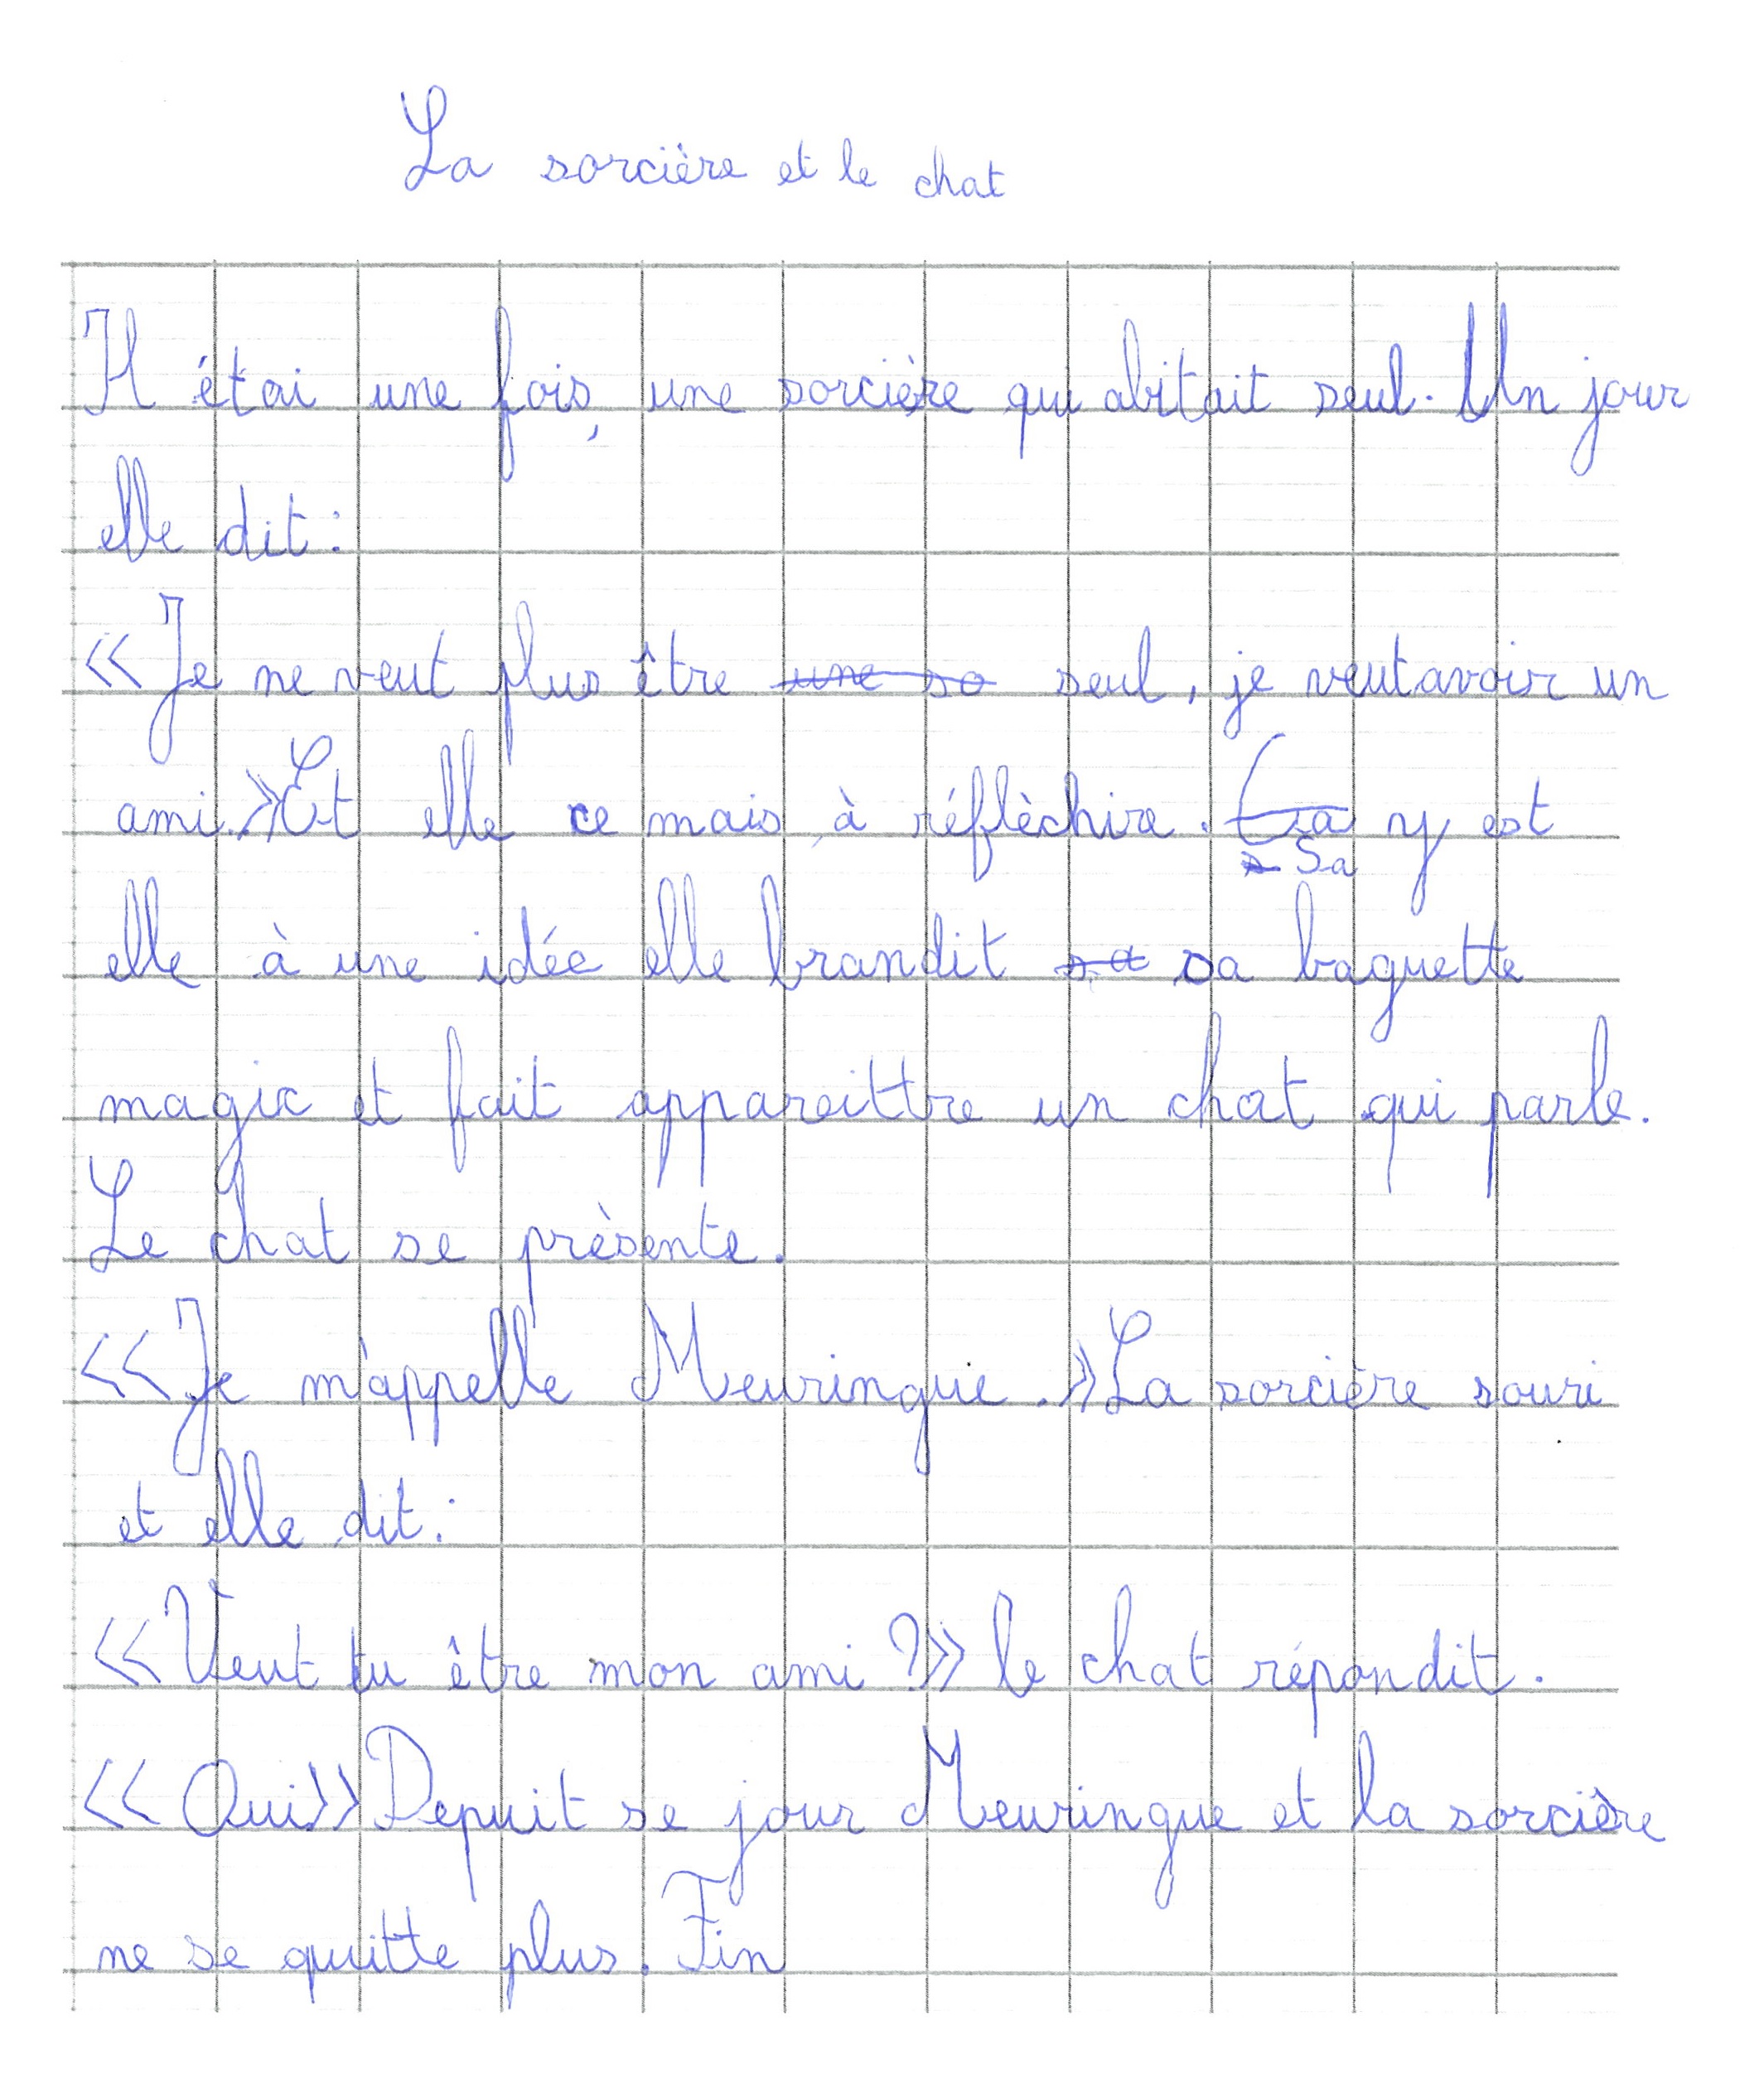 La sorcière et le chat
Il étai une fois, une sorcière qui abitait seul. Un jour
elle dit:
«Je ne veut plus être une so seul, je veut avoir un
ami.» Et elle ce mais à réflèchire. Ça y est
Sa
elle à une idée elle brandit sa sa baguette
magic et fait appareittre un chat qui parle.
Le chat se prèsente.
«Je m'appelle Meuringue.» La sorcière souri
et elle dit:
«Veut tu être mon ami?» le chat répondit.
«Oui» Depuit se jour Meuringue et la sorcière
ne se quitte plus. Fin